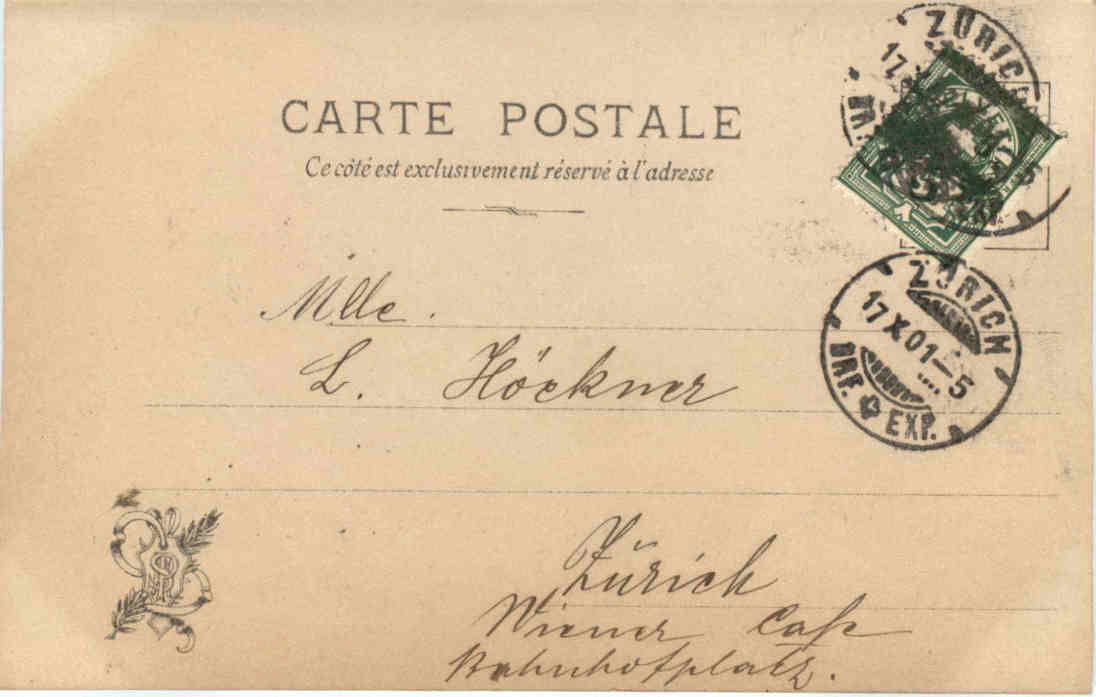 CARTE POSTALE
Ce côté est exclusivement réservé à l'adresse
ZÜRICH
17 X 01–5
BRF. EXP.
Mlle.
L. Höckner
Zürich
Wiener Café
Bahnhofplatz.